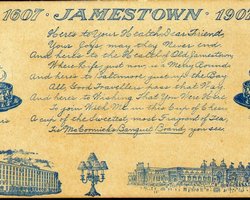 1607 · JAMESTOWN · 190
Here's to Your Health Dear Friend,
Your Joys may they Never end.
And here's to the Health of Old Jamestown
Where Life just now, is a Merry Round
And here's to Baltimore just up the Bay
All Good Travellers pass that Way
And here's to Wishing That You Were Here
To join With Me in this Cup of Cheer
A cup of the Sweetest, most Fragrant of Tea
Tis McCormick's Banquet Brand, you see